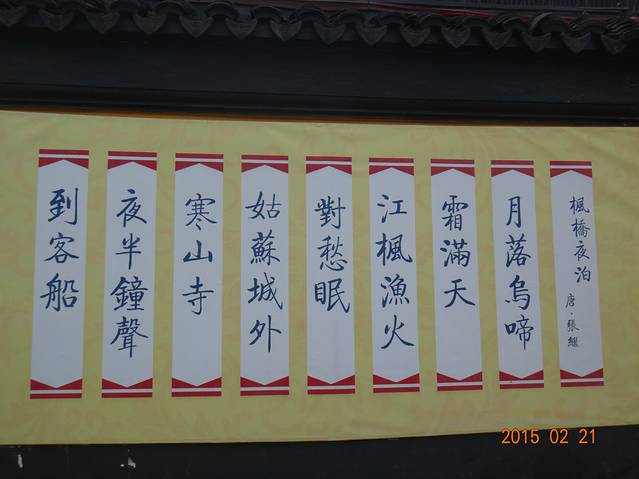 楓橋夜泊
唐·張繼
月落烏啼
霜滿天
江楓漁火
對愁眠
姑蘇城外
寒山寺
夜半鐘聲
到客船
2015 02 21